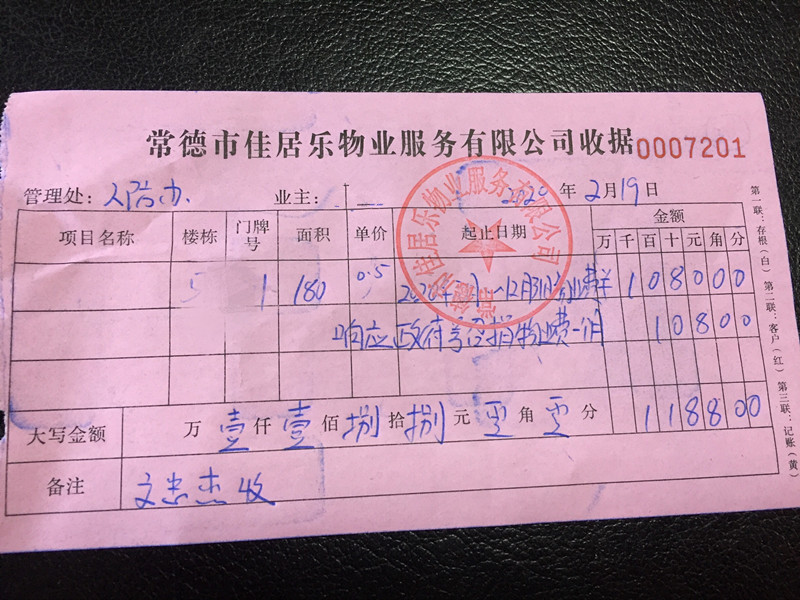 常德市佳居乐物业服务有限公司收据 0007201
管理处: 人防办 业主: 2020年2月19日
项目名称 楼栋 门牌号 面积 单价 起止日期 金额
万 千 百 十 元 角 分
5 1 180 0.5 2020年 1080.00
响应政府号召捐物业费一月 108.00
大写金额 万壹仟壹佰捌拾捌元零角零分 1188.00
备注 文忠杰收
常德市佳居乐物业服务有限公司
第一联:存根(白) 第二联:客户(红) 第三联:记账(黄)